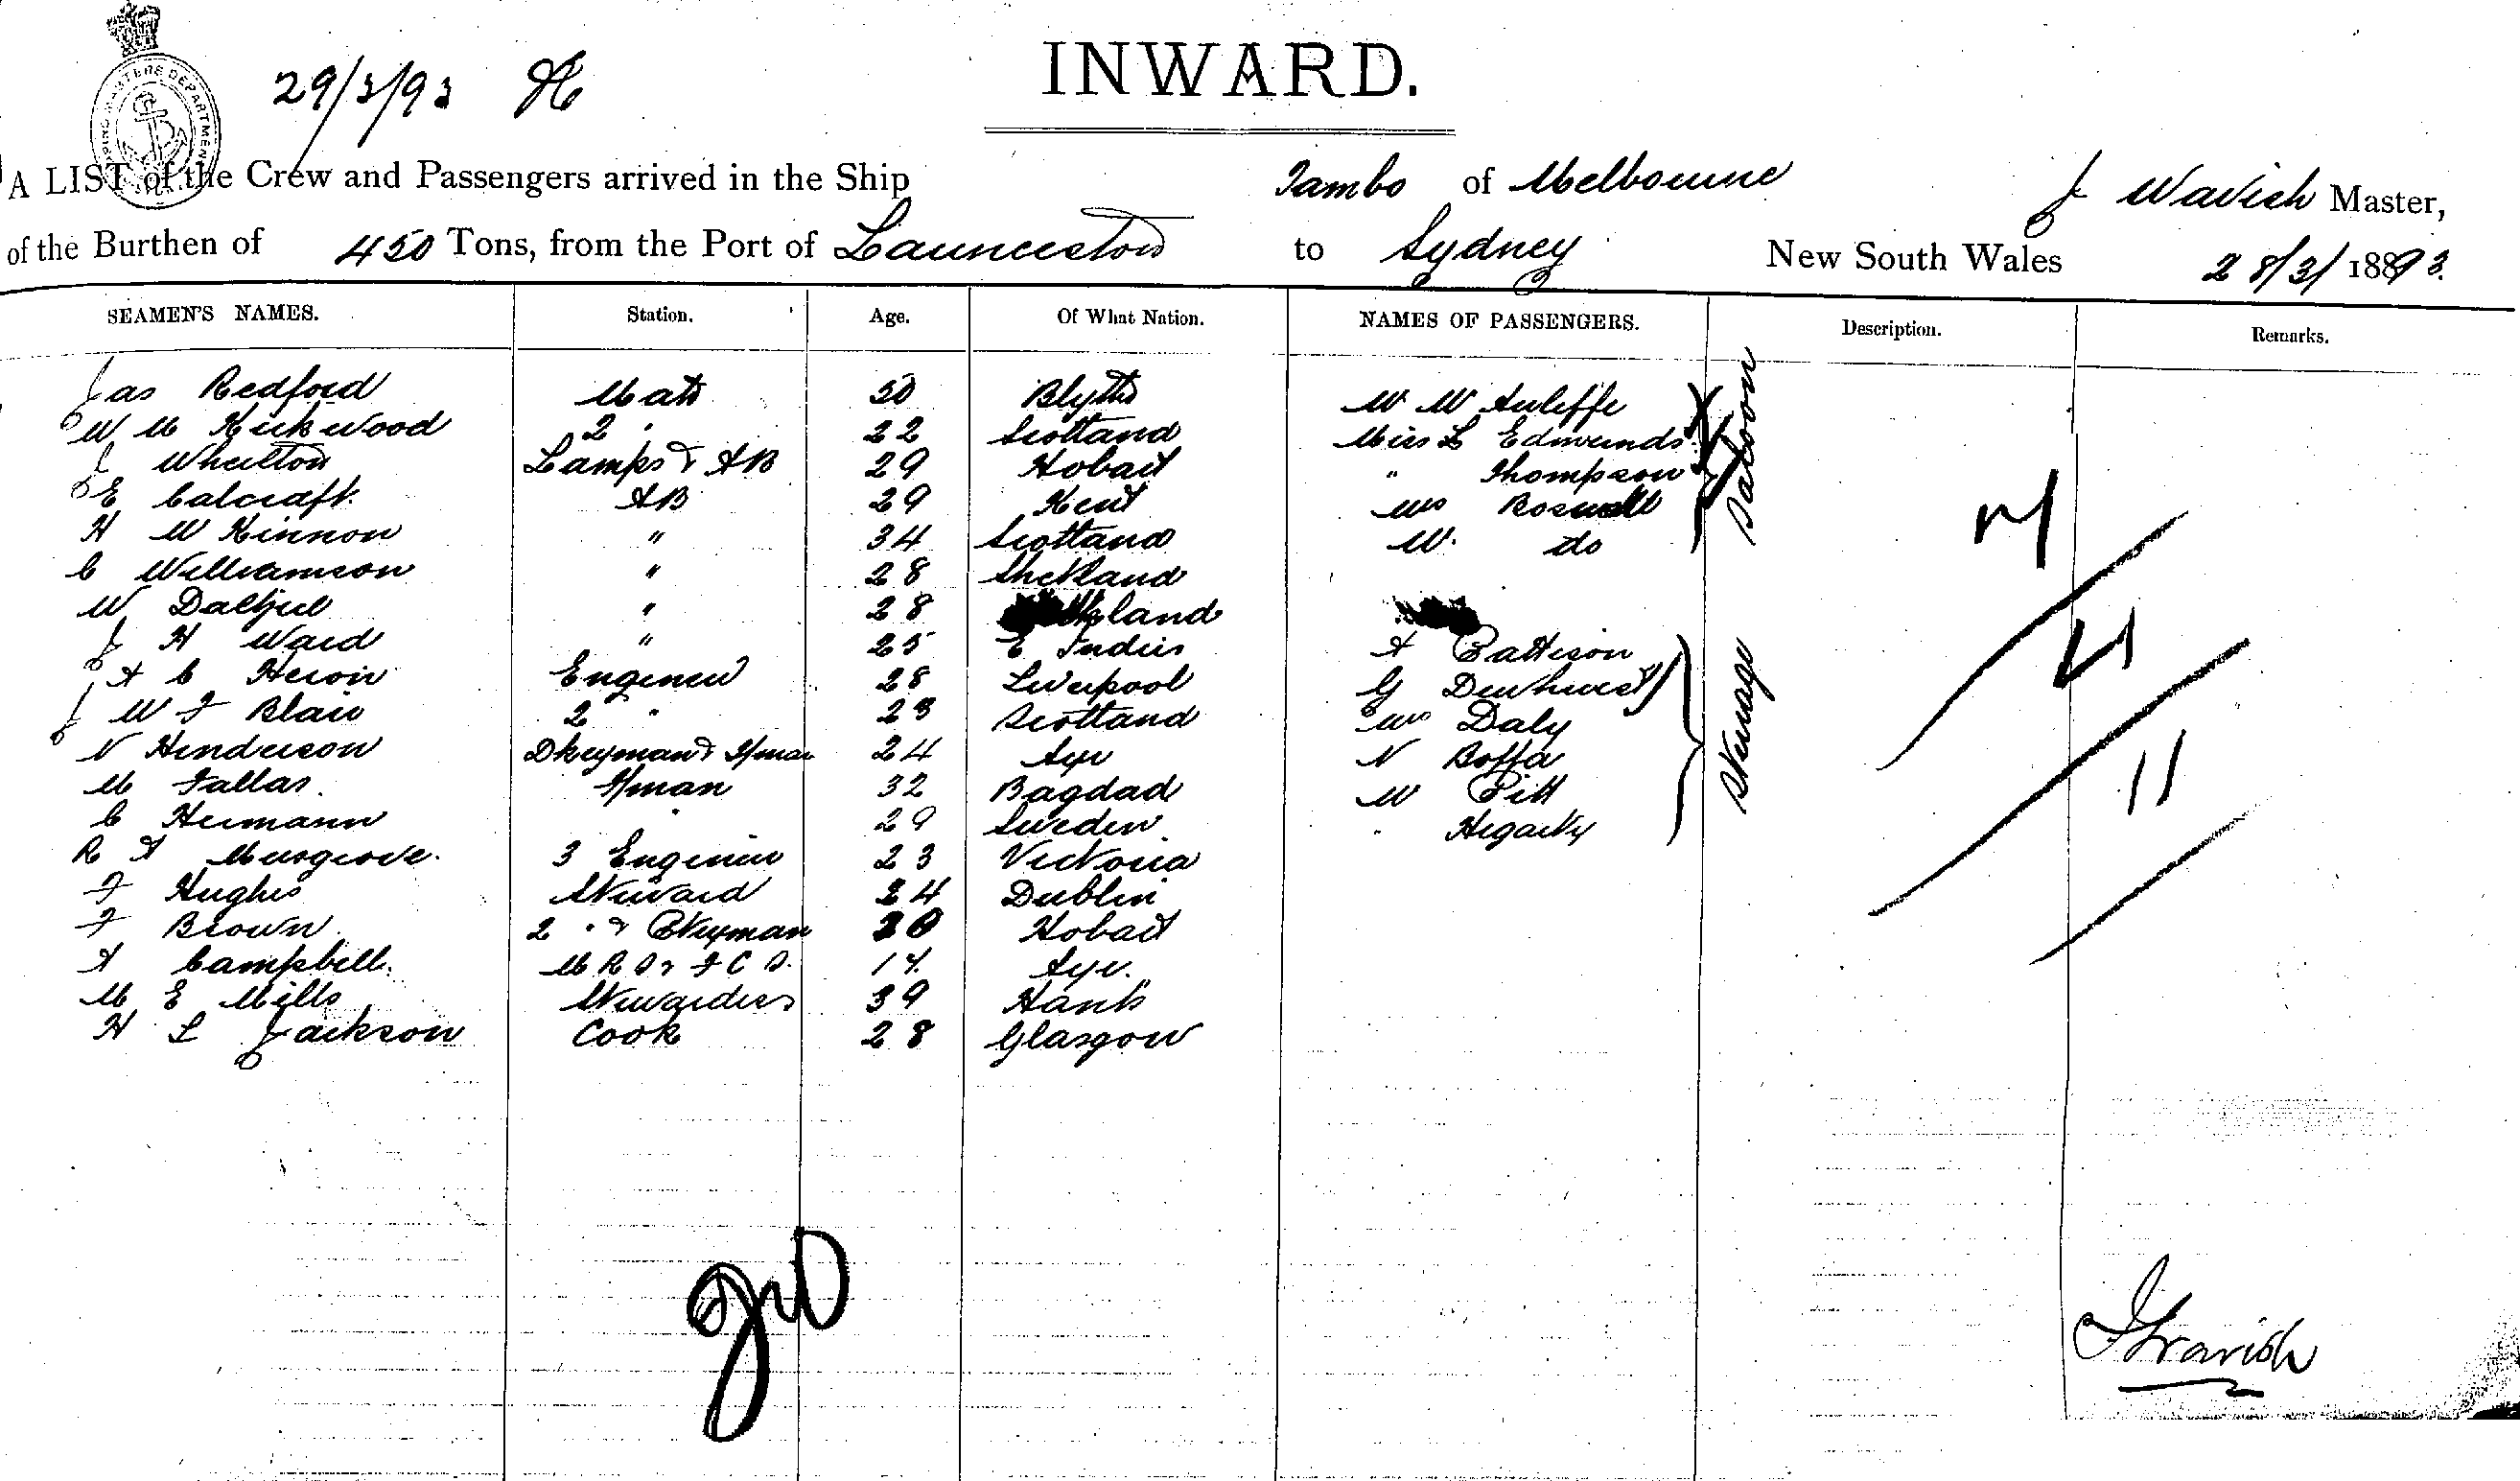 29/3/93
INWARD.
A LIST of the Crew and Passengers arrived in the Ship Tambo of Melbourne J Wavish Master,
of the Burthen of 450 Tons, from the Port of Launceston to Sydney New South Wales 28/3/1893.
SEAMEN'S NAMES. Station. Age. Of What Nation. NAMES OF PASSENGERS. Description. Remarks.
Jas Redford Mate 50 Blyth
W M Kirkwood 2 " 22 Scotland
J Wheilton Lamps & AB 29 Hobart
E Calcraft AB 29 Kent
H Mc Kinnon " 34 Scotland
C Williamson " 28 Shetland
W Dalzjel " 28
J H Ward " 25 E Indies
A C Heron Engineer 28 Liverpool
J W F Blair 2 " 23 Scotland
N Henderson Dkeyman & F/man 24 Ayr
M Fallas F/man 32 Bagdad
C Hermann " 29 Sweden
R A Musgrove 3 Engineer 23 Victoria
F Hughes Steward 24 Dublin
F Brown 2 " & Ptryman 20 Hobart
A Campbell M R S & F C S 17 Ayr
M E Mills Stewardess 39 Hants
H L Jackson Cook 28 Glasgow
Mr Mc Auliffe
Miss L Edmunds
" Thompson
Mrs Boswell
Mr. do
Saloon
A Pattison
G Dewhurst
Mrs Daly
N Boffa
W Pitt
" Hegarty
Steerage
11
JWavish